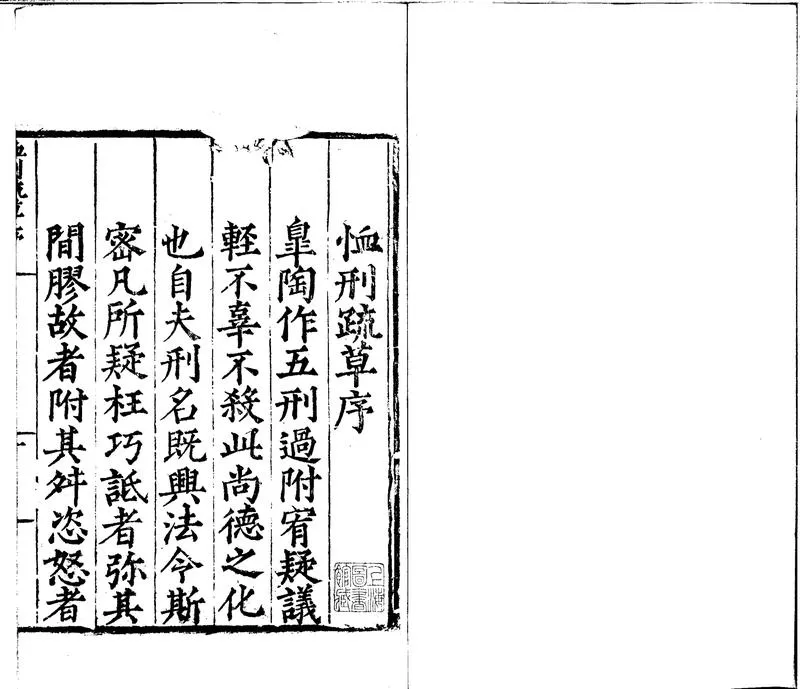 恤刑疏草序
皐陶作五刑過附宥疑議
輕不辜不殺此尚德之化
也自夫刑名既興法令斯
密凡所疑枉巧詆者弥其
間膠故者附其舛恣怒者
恤刑疏草序
上海圖書館藏